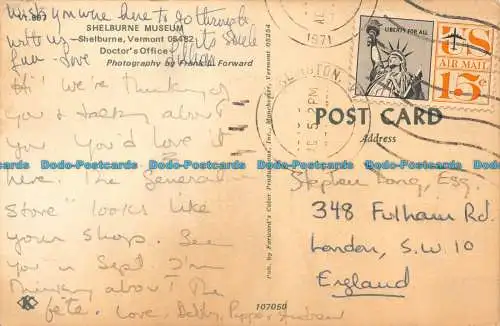 Wish you were here to go through
with us. its such
fun - Love Lillian
SHELBURNE MUSEUM
—Shelburne, Vermont 05482
Doctor's Office
Photography by Frank L. Forward
Hi! We're thinking of
you & talking about
you You'd love it
here. The General
Store" looks like
your shop. See
you in Sept. I'm
thinking about the
fête. Love, Debby, Pepper,
K
107050
Pub. by Forward's Color Productions, Inc., Manchester, Vermont 05254
1971
5 PM
LIBERTY FOR ALL
US
AIR MAIL
15¢
POST CARD
Address
Stephen Long, Esq.
348 Fulham Rd.
London, S.W. 10
England
Dodo-Postcards Dodo-Postcards Dodo-Postcards Dodo-Postcards